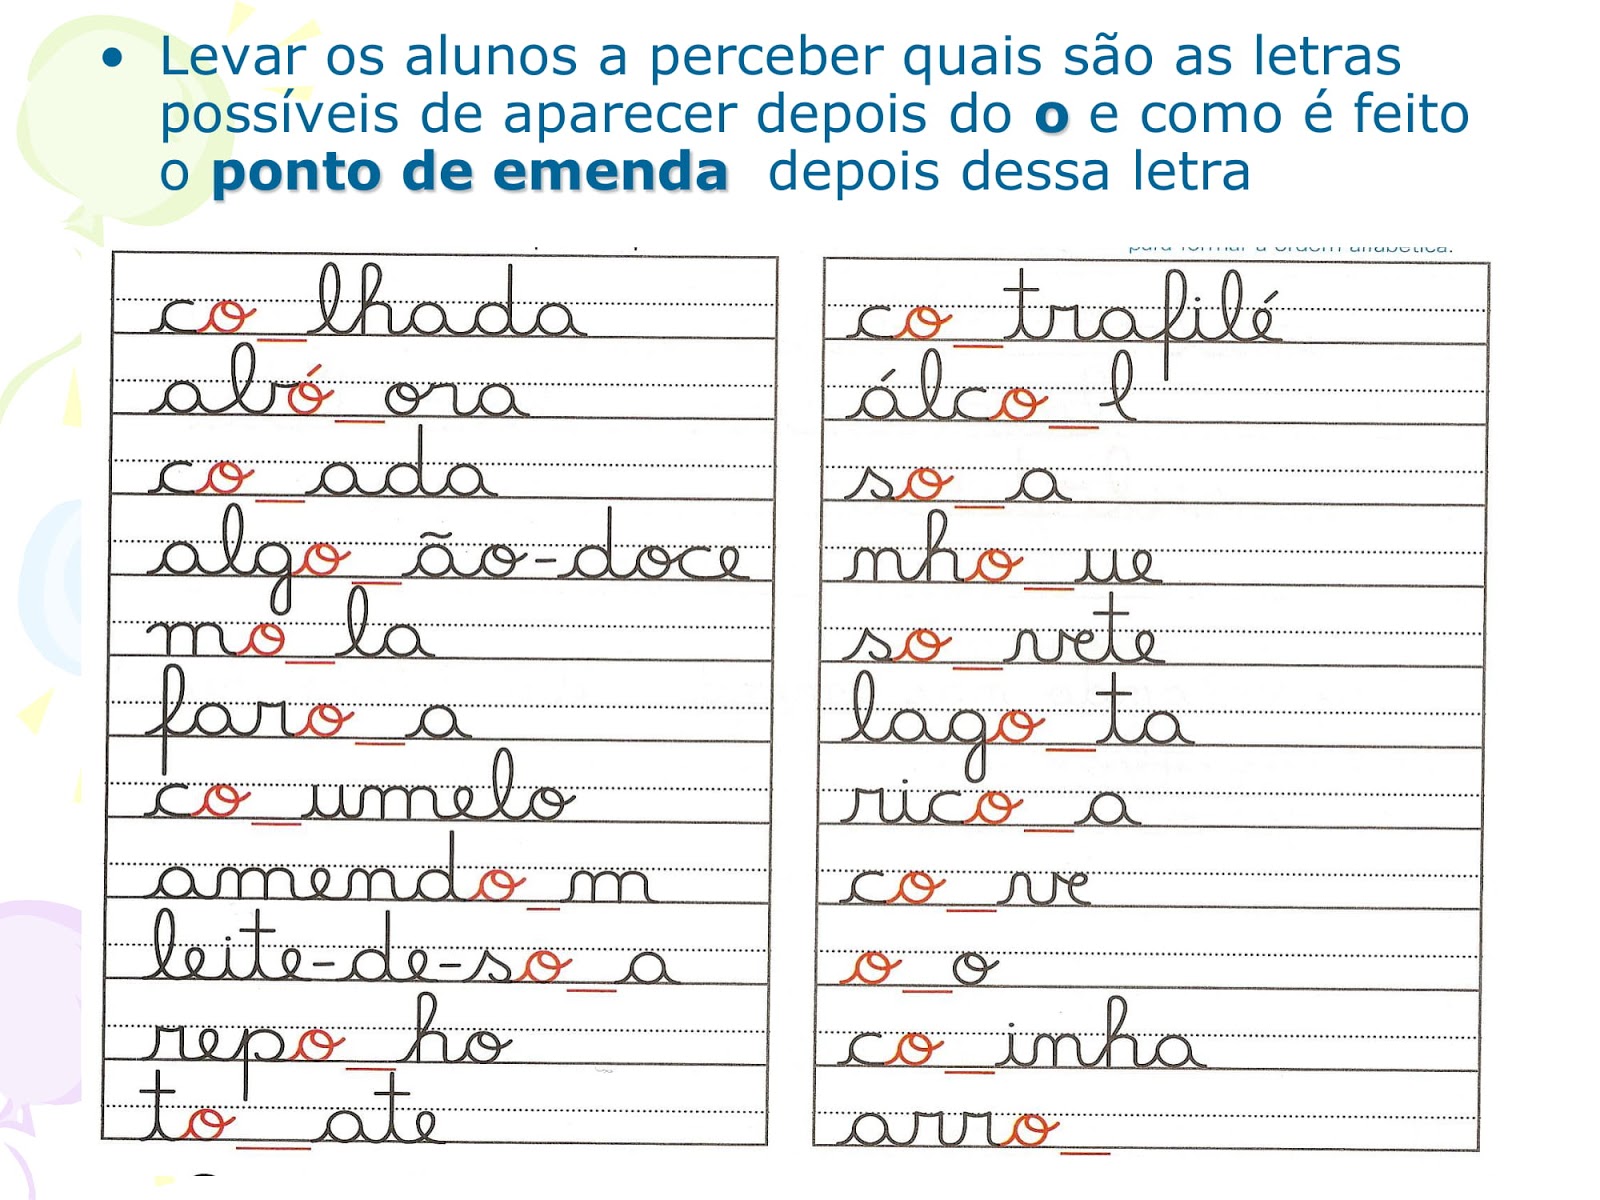 • Levar os alunos a perceber quais são as letras
possíveis de aparecer depois do o e como é feito
o ponto de emenda depois dessa letra
para formar a ordem alfabética.
co_lhada
abró_ora
co_ada
algo_ão-doce
mo_la
faro_a
co_umelo
amendo_m
leite-de-so_a
repo_ho
to_ate
co_trafilé
álco_l
so_a
nho_ue
so_vete
lago_ta
rico_a
co_ve
o_o
co_inha
arro_